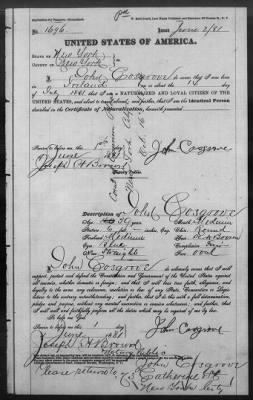 Pd
No. 1696. Issued June 2/81
UNITED STATES OF AMERICA.
STATE OF New York
COUNTY OF New York
I, John Cosgrove do swear that I was born
in Ireland on or about the 14
of July 1841 that I am a NATURALIZED AND LOYAL CITIZEN OF THE
UNITED STATES, and about to travel abroad; and further, that I am the identical Person
described in the Certificate of Naturalization, herewith presented
John Cosgrove
June 1881
Joseph H. Brown
Notary Public
Description of John Cosgrove
Age
Stature
Forehead Medium
Eyes Blue
Nose Straight
Mouth Medium
Chin Round
Hair Brown
Complexion Fair
Face Oval
I, John Cosgrove do solemnly swear that I will
support, protect and defend the Constitution and Government of the United States against
all enemies, whether domestic or foreign; and that I will bear true faith, allegiance, and
loyalty to the same, any ordinance, resolution or law of any State, Convention or Legislature
to the contrary notwithstanding; and further, that I do this with a full determination,
pledge and purpose, without any mental reservation or evasion whatsoever; and further, that
I will well and faithfully perform all the duties which may be required of me by law.
So help me God.
John Cosgrove
day of June 1881
Joseph H Brown
Notary Public
Please return to John Cosgrove
Catharine St
New York City